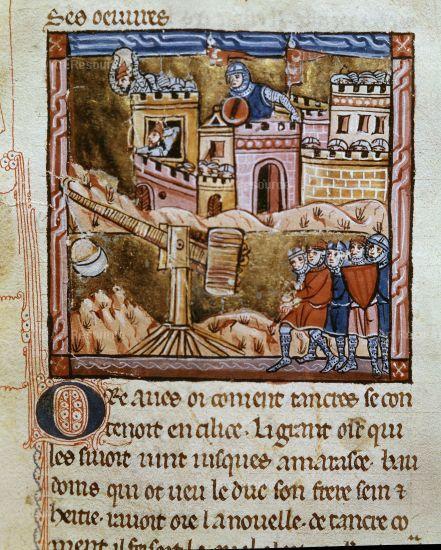 Ses oeuures
Ore aues oi coment tancres se con
tenoit en cilice. Li grant ost qui
les siuoit uint iusques a marasce. bau
doins qui ot ueu le duc son frere sein &
heitie. rauoit oie la nouele. de tancre co
ment il